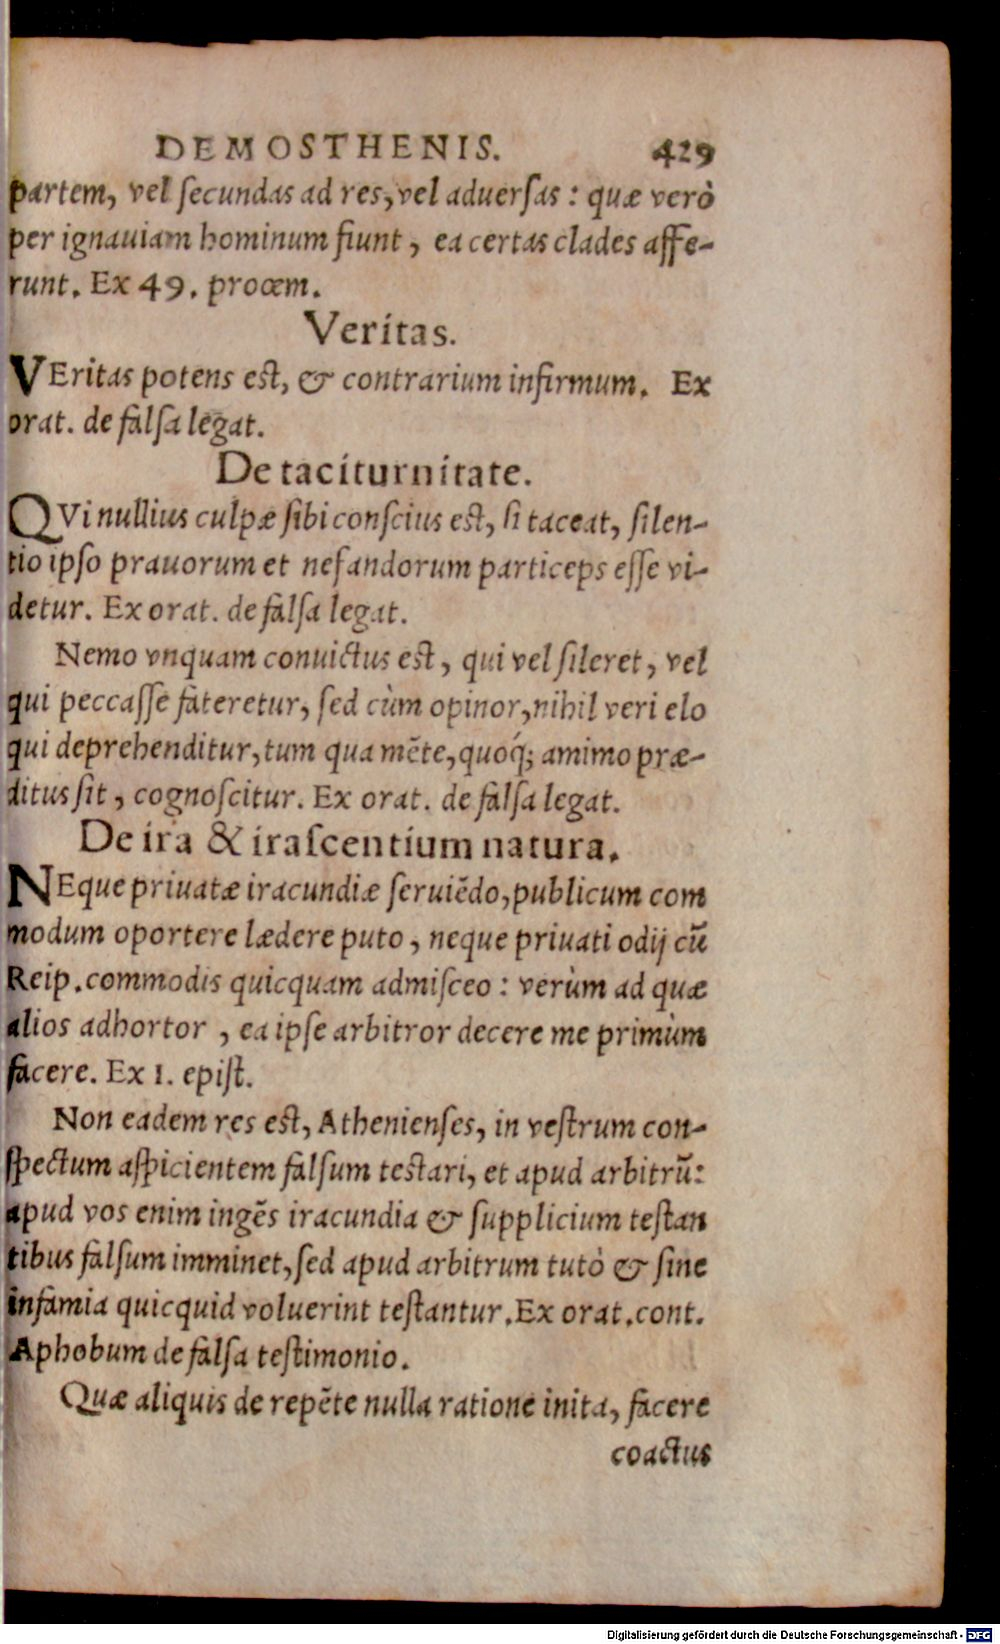 DEMOSTHENIS. 429
partem, vel ſecundas ad res, vel aduerſas : quæ verò
per ignauiam hominum fiunt , ea certas clades affe-
runt. Ex 49. proœm.
Veritas.
VEritas potens est, & contrarium infirmum. Ex
orat. de falſa legat.
De taciturnitate.
QVi nullius culpæ ſibi conſcius est, ſi taceat, ſilen-
tio ipſo prauorum et nefandorum particeps eſſe vi-
detur. Ex orat. de falſa legat.
Nemo vnquam conuictus est , qui vel ſileret , vel
qui peccaſſe fateretur, ſed cùm opinor, nihil veri elo
qui deprehenditur, tum qua mēte, quoq́; amimo præ-
ditus ſit , cognoſcitur. Ex orat. de falſa legat.
De ira & iraſcentium natura.
NEque priuatæ iracundiæ ſeruiēdo, publicum com
modum oportere lædere puto , neque priuati odij cū
Reip. commodis quicquam admiſceo : verùm ad quæ
alios adhortor , ea ipſe arbitror decere me primùm
facere. Ex 1. epiſt.
Non eadem res est, Athenienſes, in veſtrum con-
ſpectum aſpicientem falſum testari, et apud arbitrū:
apud vos enim ingēs iracundia & ſupplicium teſtan
tibus falſum imminet, ſed apud arbitrum tutò & ſine
infamia quicquid voluerint teſtantur. Ex orat. cont.
Aphobum de falſa teſtimonio.
Quæ aliquis de repēte nulla ratione inita, facere
coactus
Digitalisierung gefördert durch die Deutsche Forschungsgemeinschaft - DFG